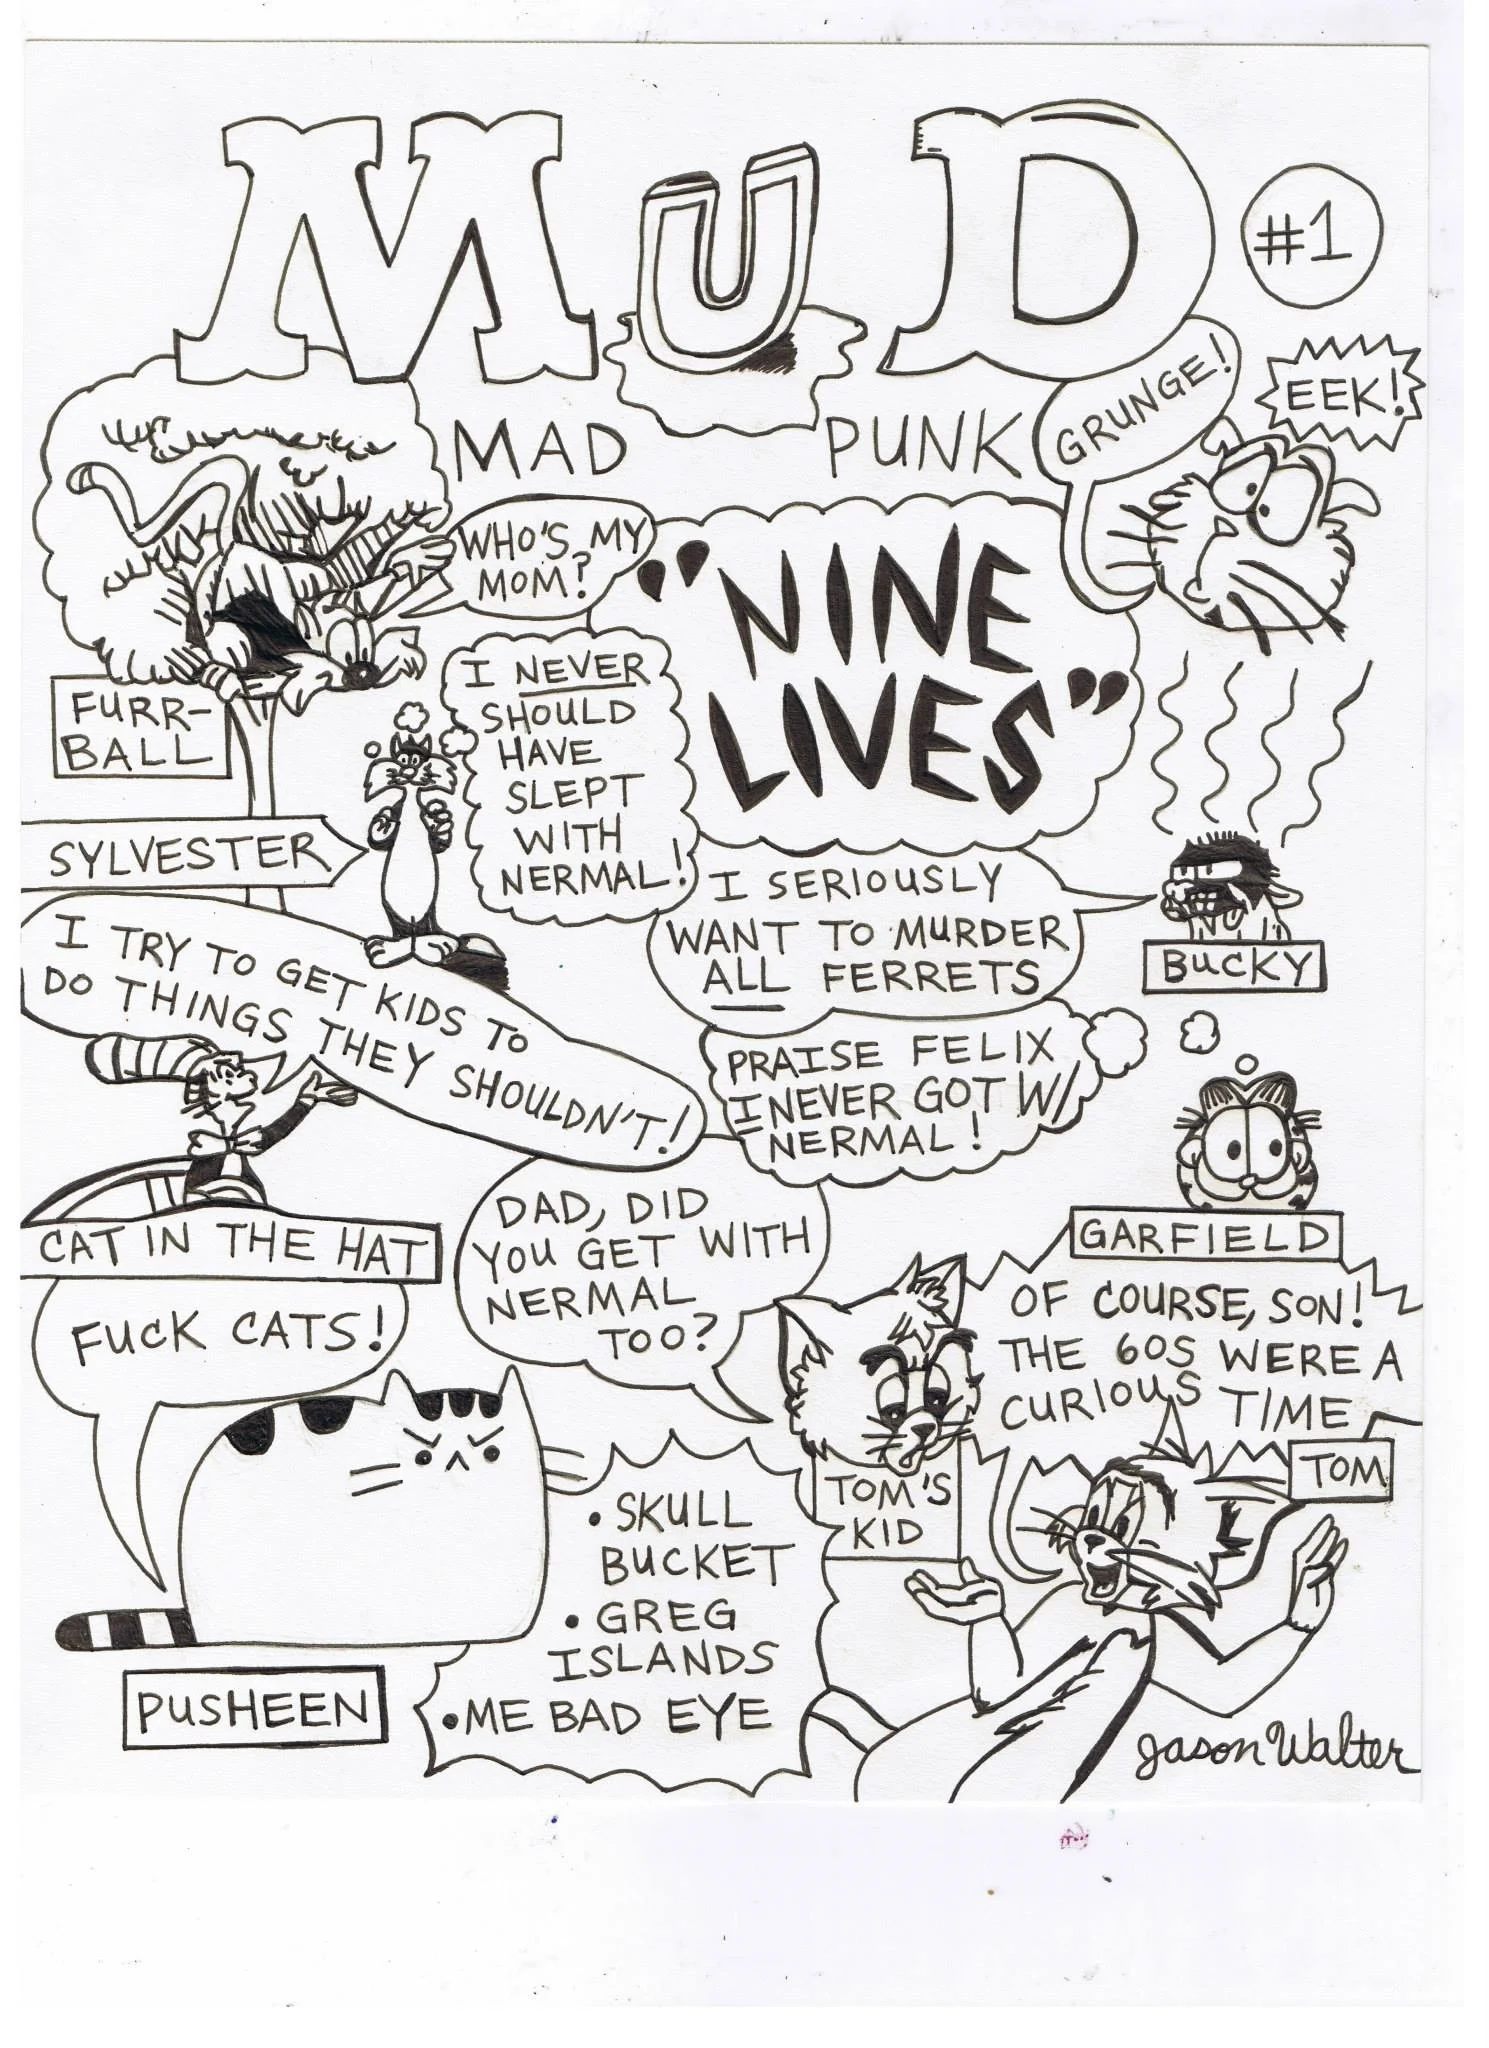 MuD
#1
MAD
PUNK
GRUNGE!
EEK!
WHO'S MY
MOM?
"NINE
LIVES"
FURR-
BALL
I NEVER
SHOULD
HAVE
SLEPT
WITH
NERMAL!
SYLVESTER
I SERIOUSLY
WANT TO MURDER
ALL FERRETS
BUCKY
I TRY TO GET KIDS TO
DO THINGS THEY SHOULDN'T!
PRAISE FELIX
I NEVER GOT W/
NERMAL!
CAT IN THE HAT
GARFIELD
DAD, DID
YOU GET WITH
NERMAL
TOO?
OF COURSE, SON!
THE 60S WERE A
CURIOUS TIME
FUCK CATS!
TOM'S
KID
TOM
• SKULL
BUCKET
• GREG
ISLANDS
• ME BAD EYE
PUSHEEN
Jason Walter